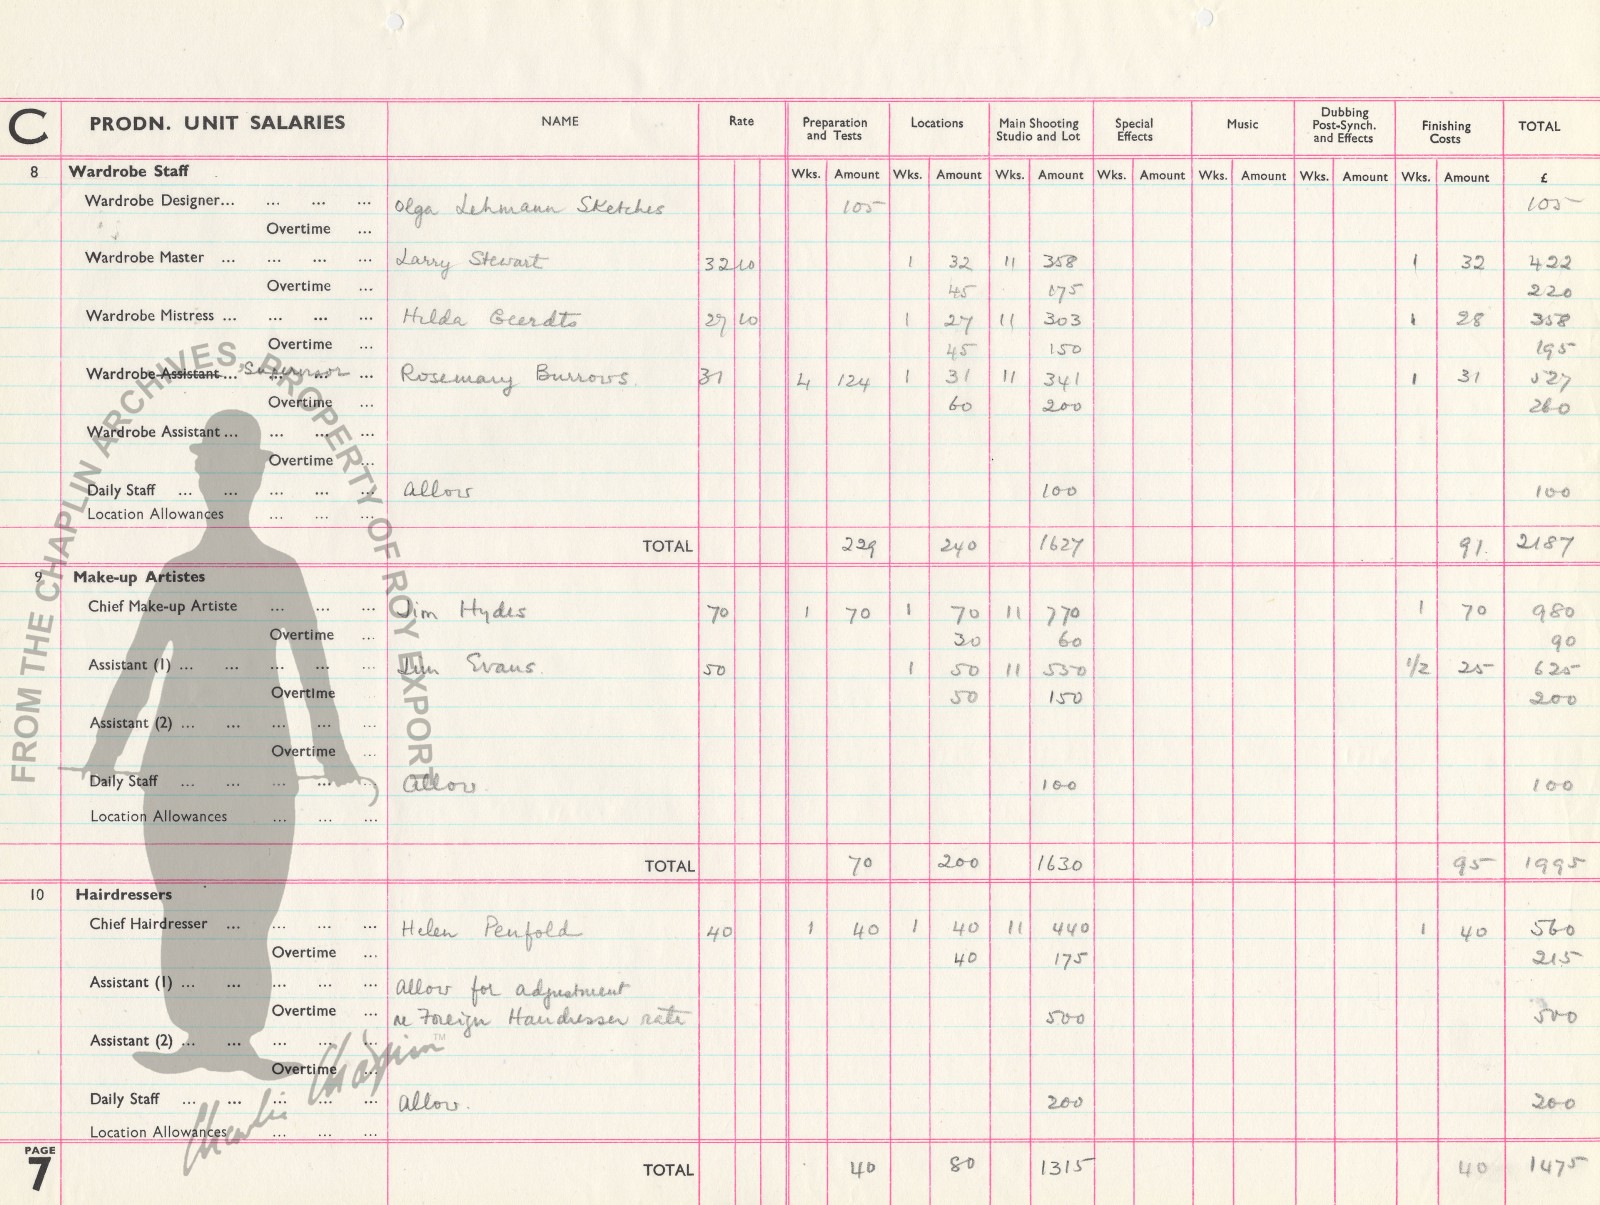 C PRODN. UNIT SALARIES NAME Rate Preparation and Tests Locations Main Shooting Studio and Lot Special Effects Music Dubbing Post-Synch. and Effects Finishing Costs TOTAL
8 Wardrobe Staff Wks. Amount Wks. Amount Wks. Amount Wks. Amount Wks. Amount Wks. Amount Wks. Amount £
Wardrobe Designer... ... ... ... Olga Lehmann Sketches 105 105
Overtime ...
Wardrobe Master ... ... ... ... Larry Stewart 32 10 1 32 11 358 1 32 422
Overtime ... 45 175 220
Wardrobe Mistress ... ... ... ... Hilda Geerdts 27 10 1 27 11 303 1 28 358
Overtime ... 45 150 195
Wardrobe Assistant... "Supervisor ... ... ... Rosemary Burrows. 31 4 124 1 31 11 341 1 31 527
Overtime ... 60 200 260
Wardrobe Assistant... ... ... ...
Overtime ...
Daily Staff ... ... ... ... ... Allow 100 100
Location Allowances ... ... ...
TOTAL 229 240 1627 91. 2187
9 Make-up Artistes
Chief Make-up Artiste ... ... ... Jim Hydes 70 1 70 1 70 11 770 1 70 980
Overtime ... 30 60 90
Assistant (1) ... ... ... ... ... Jim Evans. 50 1 50 11 550 1/2 25 625
Overtime ... 50 150 200
Assistant (2) ... ... ... ... ...
Overtime ...
Daily Staff ... ... ... ... ... Allow. 100 100
Location Allowances ... ... ...
TOTAL 70 200 1630 95 1995
10 Hairdressers
Chief Hairdresser ... ... ... ... Helen Penfold 40 1 40 1 40 11 440 1 40 560
Overtime ... 40 175 215
Assistant (1) ... ... ... ... ... Allow for adjustment
Overtime ... re Foreign Hairdresser rate 500 500
Assistant (2) ... ... ... ... ...
Overtime ...
Daily Staff ... ... ... ... ... Allow. 200 200
Location Allowances ... ... ...
PAGE
7 TOTAL 40 80 1315 40 1475
FROM THE CHAPLIN ARCHIVES, PROPERTY OF ROY EXPORT
Charlie Chaplin™